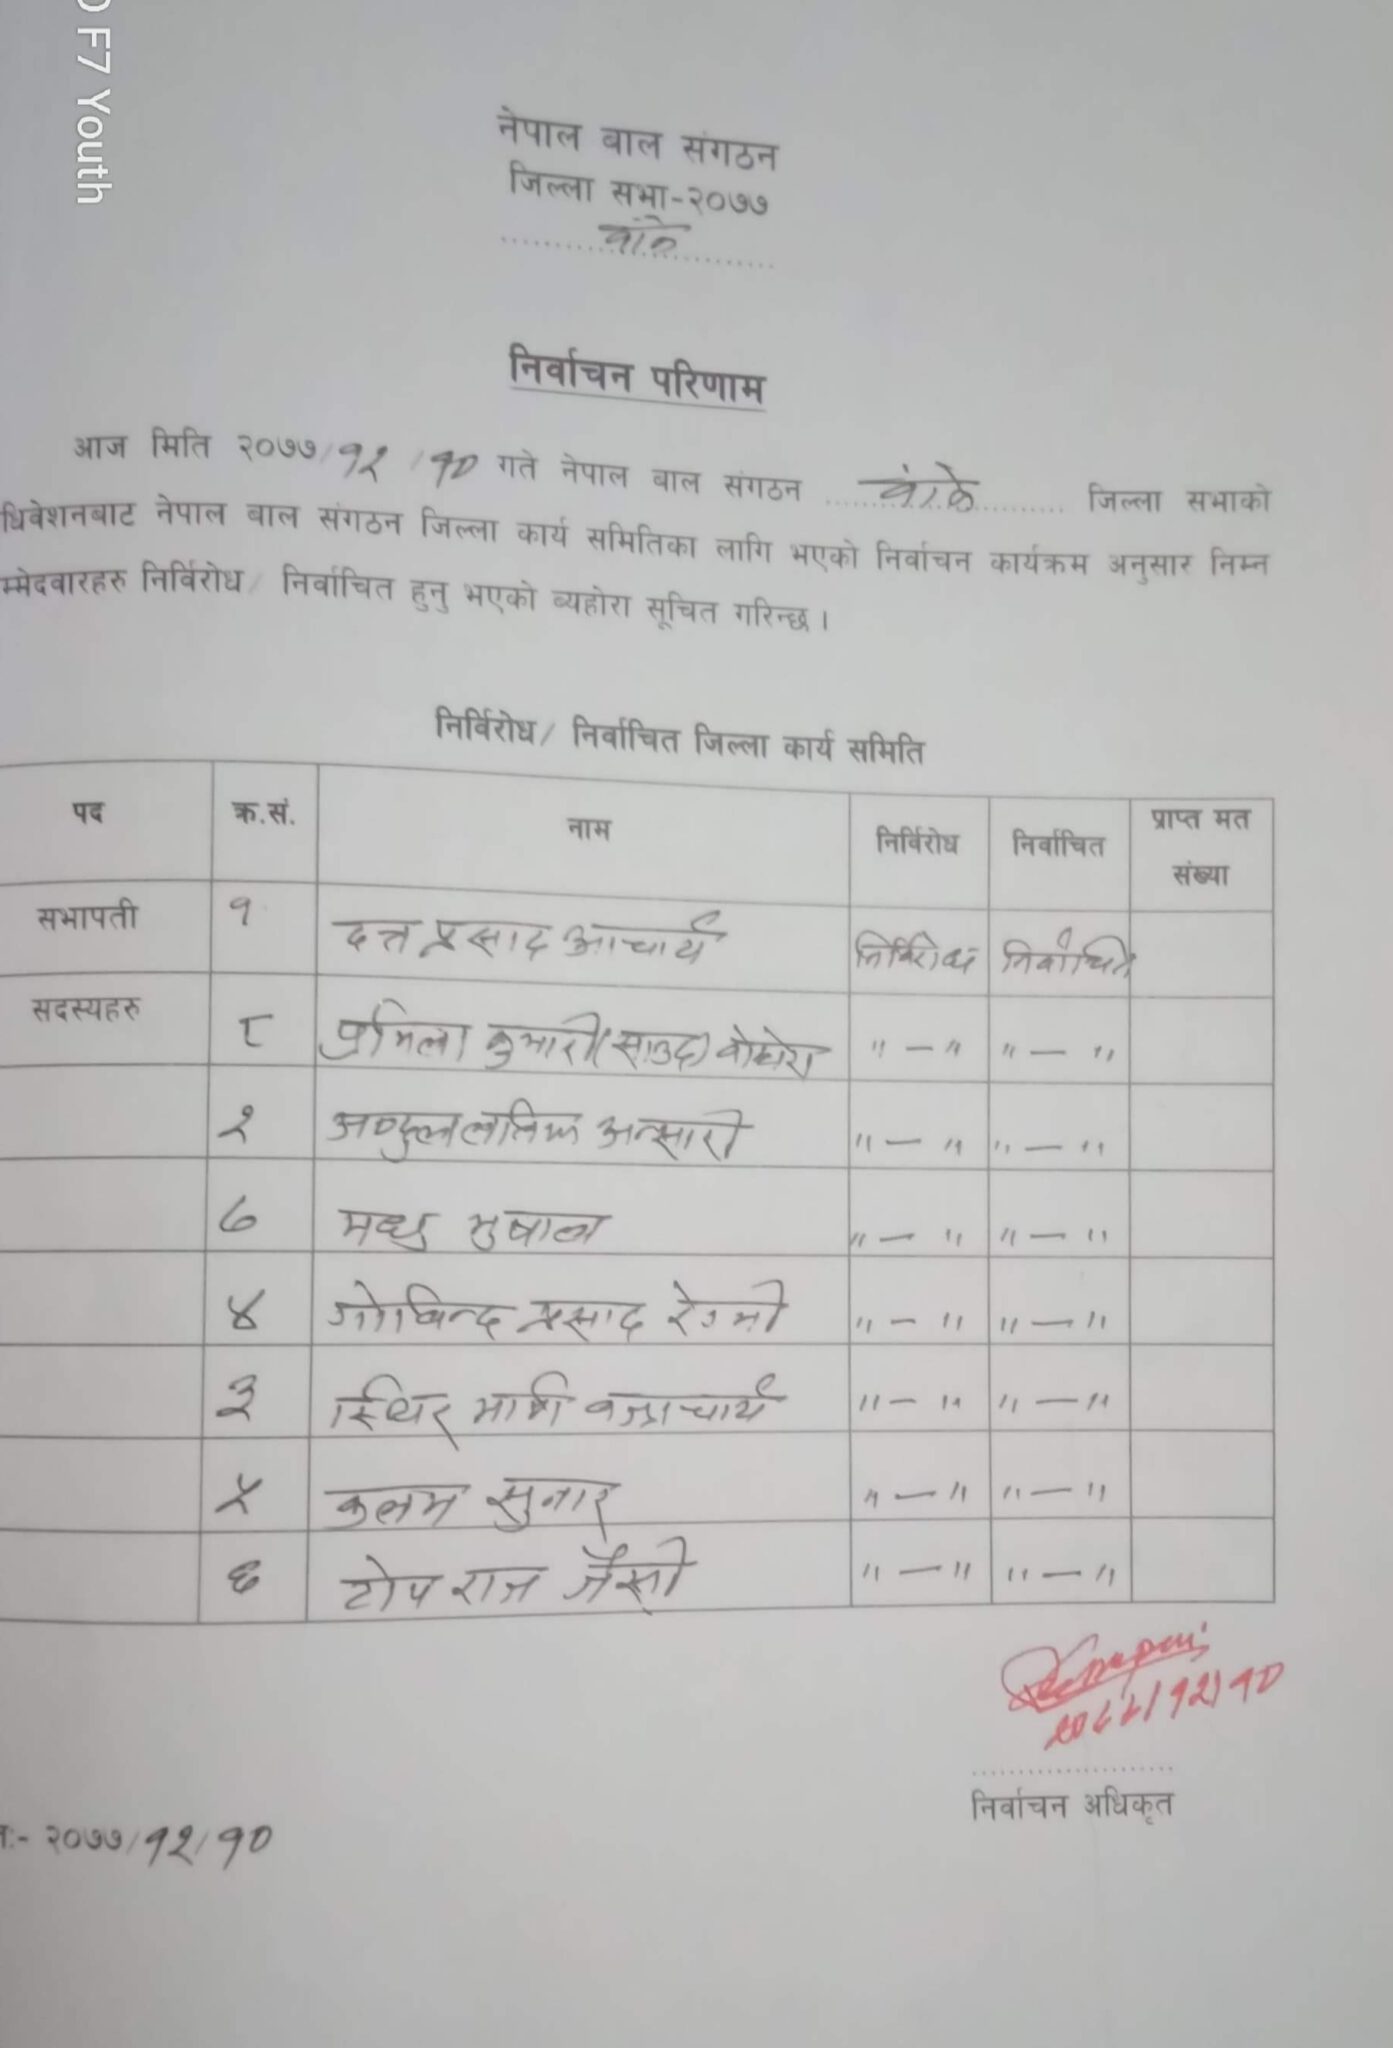 F7 Youth
नेपाल बाल संगठन
जिल्ला सभा-२०७७
बांके
निर्वाचन परिणाम
आज मिति २०७७/१२/१० गते नेपाल बाल संगठन बांके जिल्ला सभाको
धिवेशनबाट नेपाल बाल संगठन जिल्ला कार्य समितिका लागि भएको निर्वाचन कार्यक्रम अनुसार निम्न
म्मेदवारहरु निर्विरोध/ निर्वाचित हुनु भएको ब्यहोरा सूचित गरिन्छ ।
निर्विरोध/ निर्वाचित जिल्ला कार्य समिति
पद क्र.सं. नाम निर्विरोध निर्वाचित प्राप्त मत संख्या
सभापती १ दत्त प्रसाद आचार्य निर्विरोध निर्वाचित
सदस्यहरु ८ प्रमिला कुमारी (साउद) वोहोरा " — " " — "
२ अब्दुल लतिफ अन्सारी " — " " — "
७ मधु भुषाल " — " " — "
४ गोबिन्द प्रसाद रेग्मी " — " " — "
३ स्थिर मणि वज्राचार्य " — " " — "
५ कलम सुनार " — " " — "
६ टोप राज जैसी " — " " — "
२०७७/१२/१०
निर्वाचन अधिकृत
:- २०७७/१२/१०